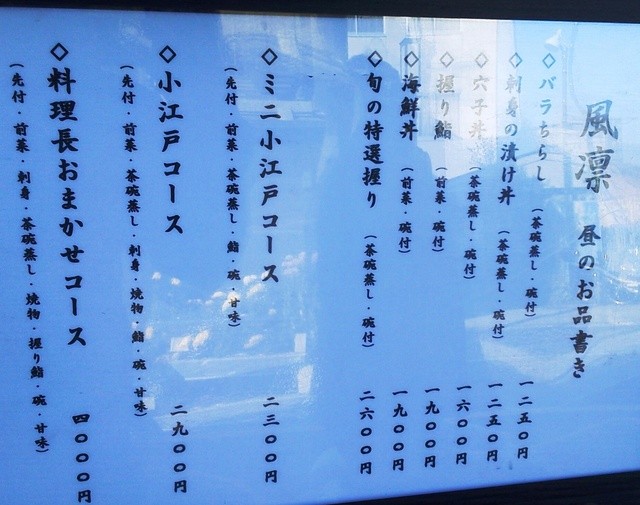 風凛 昼のお品書き
◇バラちらし (茶碗蒸し・碗付) 一二五〇円
◇刺身の漬け丼 (茶碗蒸し・碗付) 一二五〇円
◇穴子丼 (茶碗蒸し・碗付) 一六〇〇円
◇握り鮨 (前菜・碗付) 一九〇〇円
◇海鮮丼 (前菜・碗付) 一九〇〇円
◇旬の特選握り (茶碗蒸し・碗付) 二六〇〇円
◇ミニ小江戸コース 二三〇〇円
(先付・前菜・茶碗蒸し・鮨・碗・甘味)
◇小江戸コース 二九〇〇円
(先付・前菜・茶碗蒸し・刺身・焼物・鮨・碗・甘味)
◇料理長おまかせコース 四〇〇〇円
(先付・前菜・刺身・茶碗蒸し・焼物・握り鮨・碗・甘味)